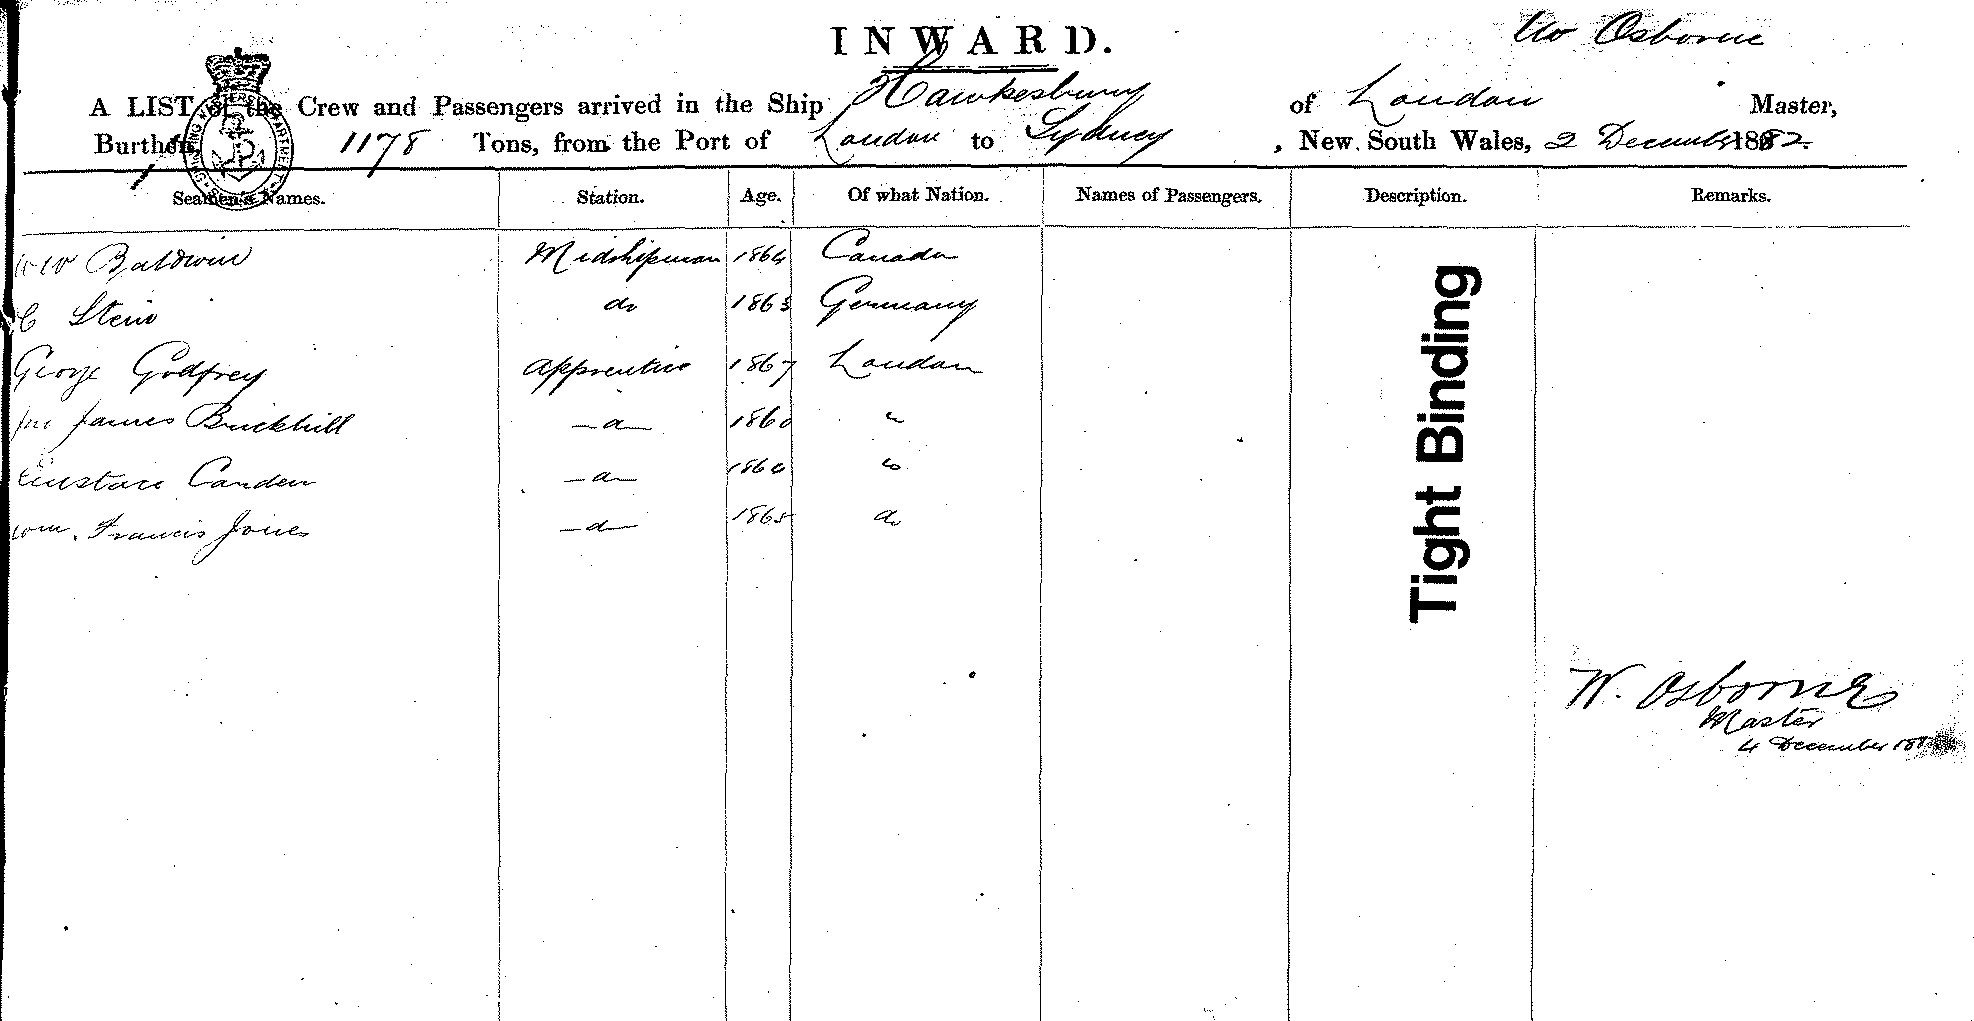 INWARD.
W Osborne
A LIST of the Crew and Passengers arrived in the Ship Hawkesbury of London Master,
Burthen, 1178 Tons, from the Port of London to Sydney, New South Wales, 2 December 1882.
Seamen's Names. Station. Age. Of what Nation. Names of Passengers. Description. Remarks.
W W Baldwin Midshipman 1864 Canada
C Stein do 1863 Germany
George Godfrey apprentice 1867 London
James Brickhill 1860 "
Eustace Camden do
Wm. Francis Jones 1865 do
Tight Binding
W. Osborne
Master
4 December 188